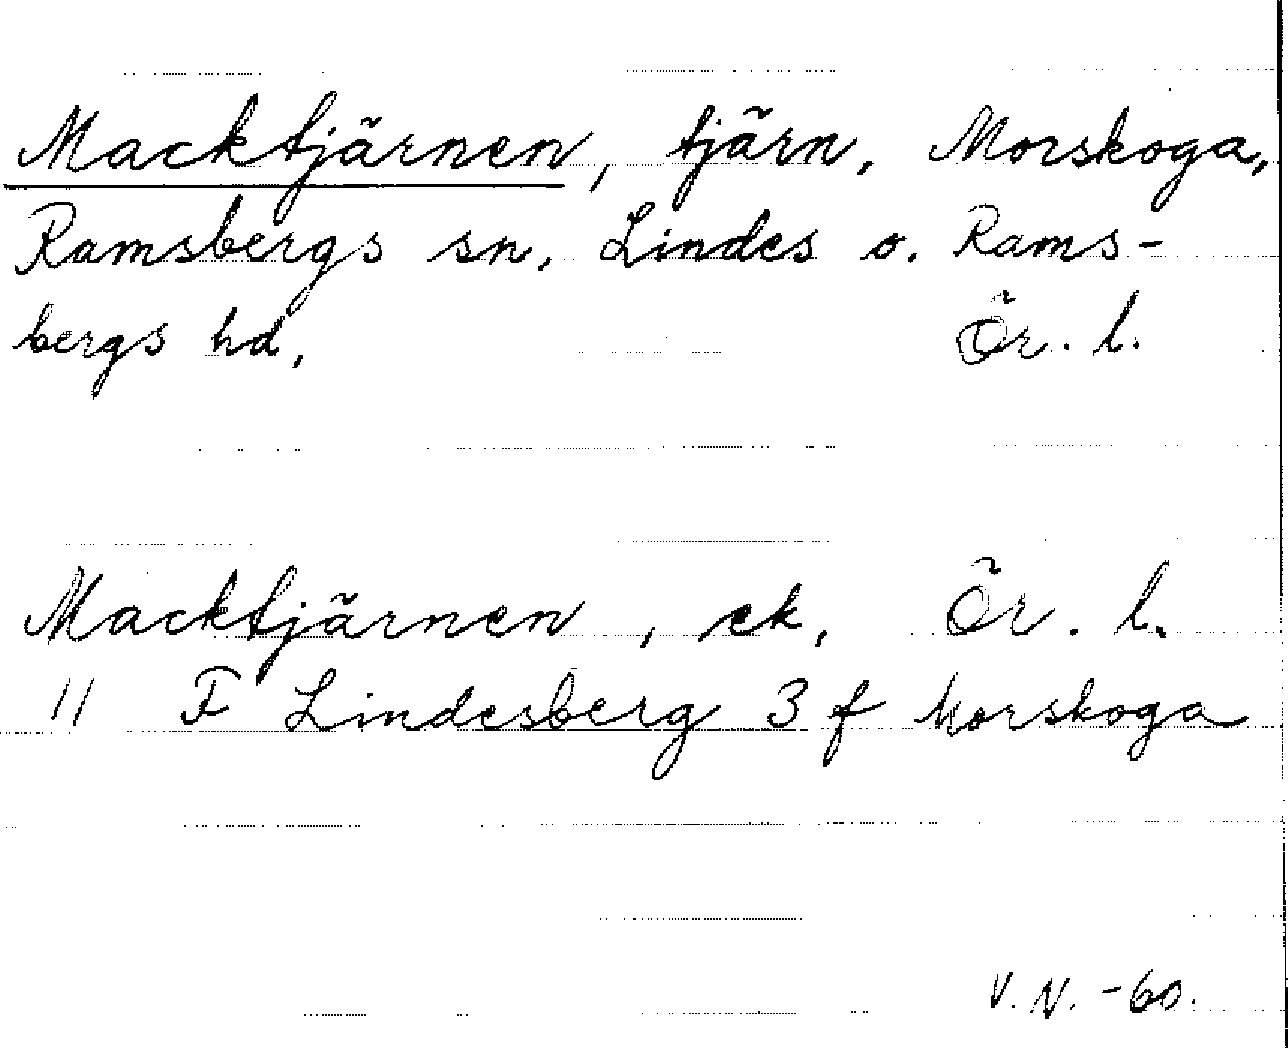 Macktjärnen, tjärn, Morskoga,
Ramsbergs sn, Lindes o. Rams-
bergs hd, Ör. l.
Macktjärnen, ek, Ör. l.
11 F Lindesberg 3 f Morskoga
V. N. -60.